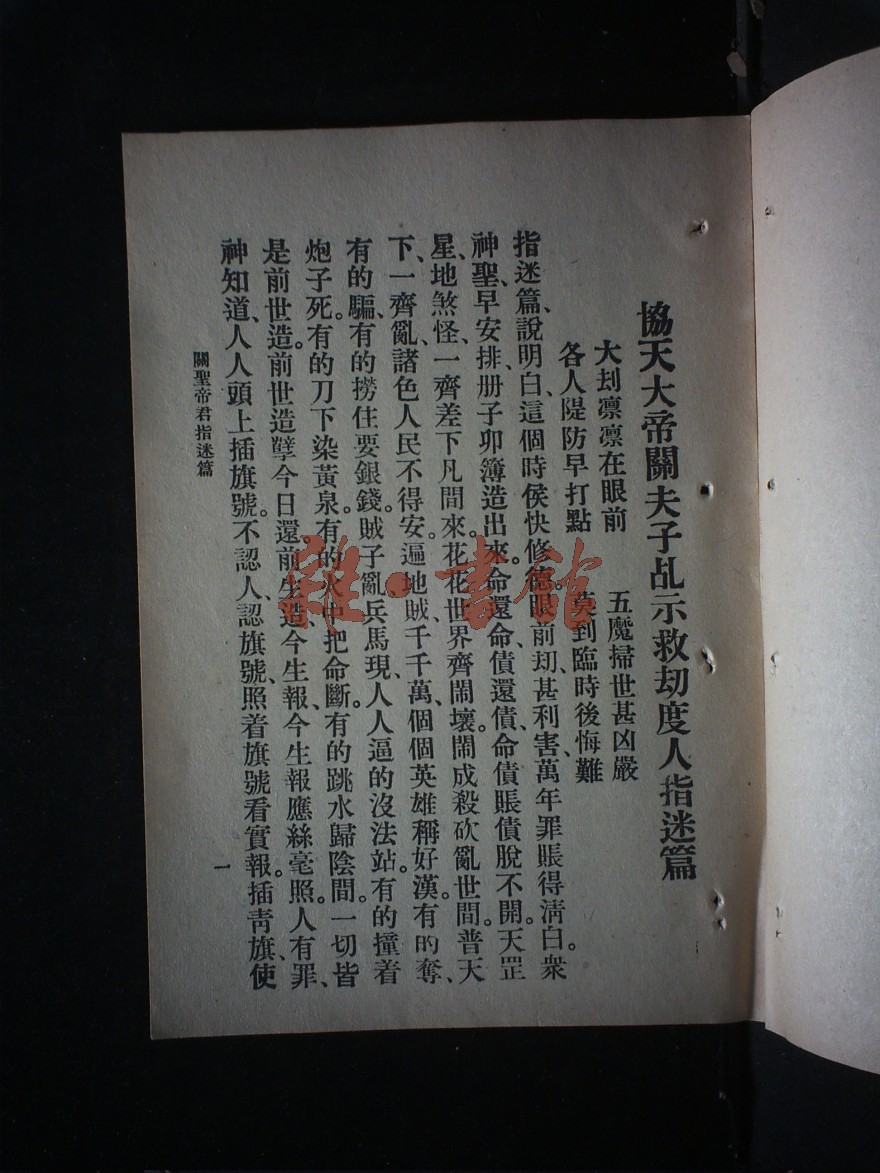 協天大帝關夫子乩示救刧度人指迷篇
大刦凛凛在眼前　五魔掃世甚凶嚴
各人隄防早打點　莫到臨時後悔難
指迷篇、說明白、這個時侯快修德。眼前刧、甚利害、萬年罪賬得淸白。衆
神聖、早安排、册子卯簿造出來。命還命、債還債、命債賬債脫不開。天罡
星、地煞怪、一齊差下凡間來。花花世界齊鬧壞。鬧成殺砍亂世間。普天
下、一齊亂、諸色人民不得安。遍地賊、千千萬、個個英雄稱好漢。有的奪、
有的騙、有的撈住要銀錢。賊子亂、兵馬現、人人逼的沒法站。有的撞着
炮子死。有的刀下染黃泉。有的火中把命斷。有的跳水歸陰間。一切皆
是前世造。前世造孽今日還。前生造、今生報、今生報應絲毫照。人有罪、
神知道、人人頭上插旗號。不認人、認旗號、照着旗號看實報。插靑旗、使
關聖帝君指迷篇
一
雜·書館